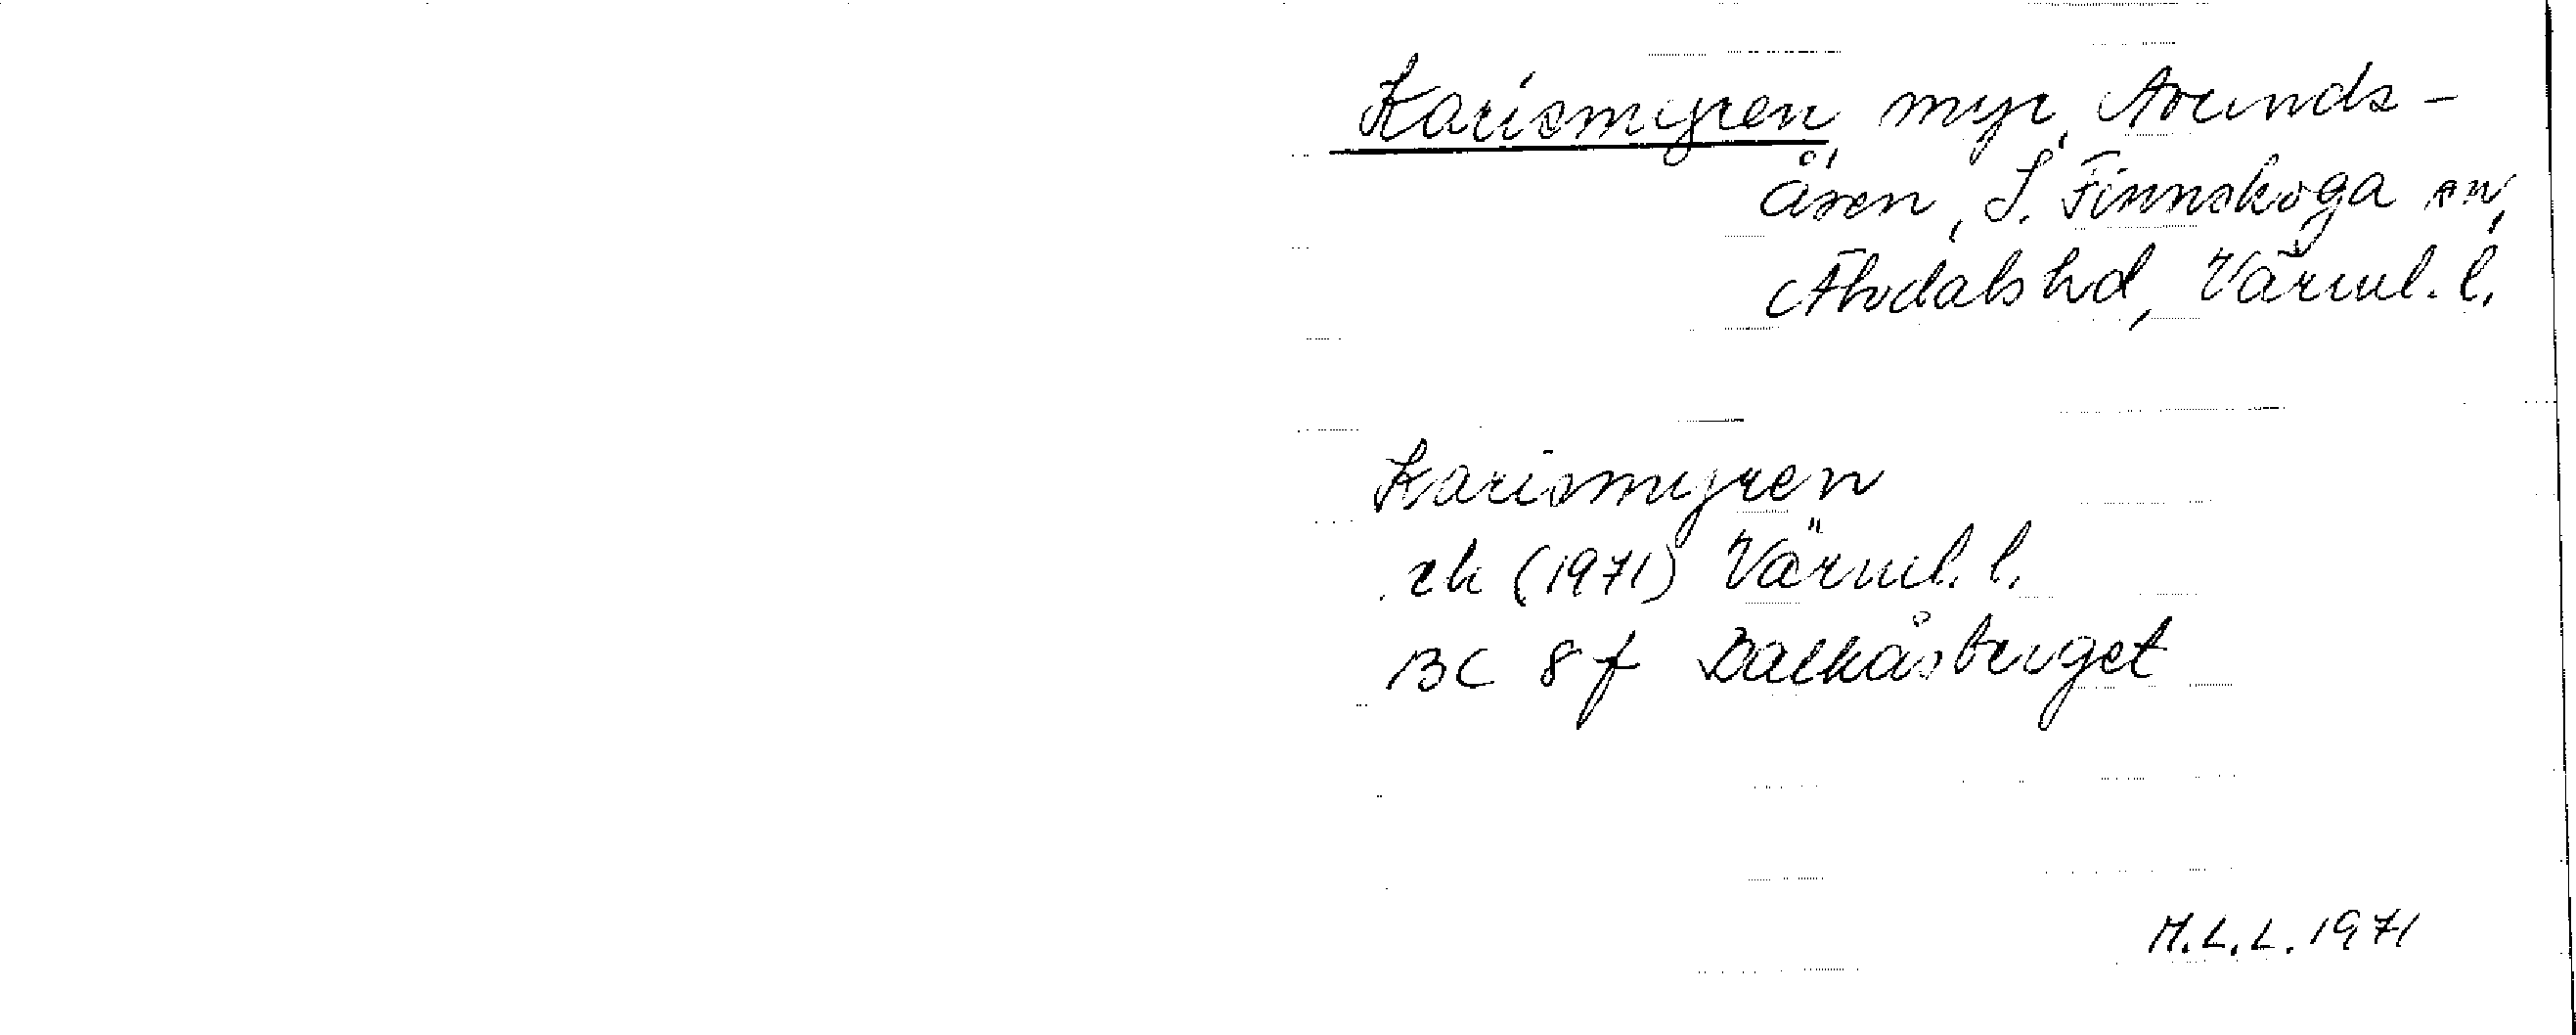 Karismyren, myr, Avunds-
åsen, S. Finnskoga sn,
Älvdals hd, Värml. l.
Karismyren
ek (1971) Värml. l.
BC 8f Balkåsberget
M.L.L. 1971